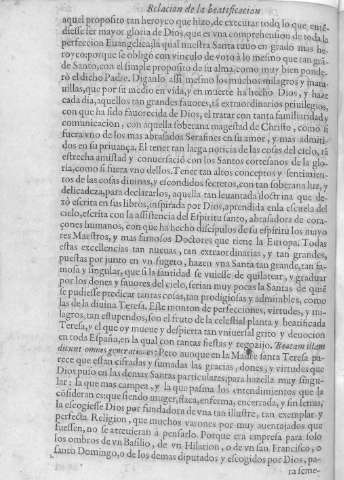 Relacion de la beatificacion
aquel proposito tan heroyco que hizo, de executar todo lo que entẽ-
diesse ser mayor gloria de Dios, que es vna comprehension de toda la
perfeccion Euangelica, a la qual nuestra Santa tuuo en grado mas he-
royco, porque se obligò con vinculo de voto à lo mesmo que tan grã-
de Santo, con el simple proposito de su alma, como muy bien ponde-
rò el dicho Padre. Diganlo assi mesmo los muchos milagros y mara-
uillas, que por su medio en vida, y en muerte ha hecho Dios, y haze
cada dia, aquellos tan grandes fauores, tã extraordinarios priuilegios,
con que ha sido fauorecida de Dios, el tratar con tanta familiaridad, y
comunicacion, con aquella soberana magestad de Christo, como si
fuera vno de los mas abrasados Serafines en su amor, y mas admiti-
dos en su priuança. El tener tan larga noticia de las cosas del cielo, tã
estrecha amistad y conuersaciõ con los Santos cortesanos de la glo-
ria, como si fuera vno dellos. Tener tan altos conceptos y sentimien-
tos de las cosas diuinas, y escondidos secretos, con tan soberana luz, y
delicadeza, para declararlos, aquella tan leuantada doctrina que de-
xò escrita en sus libros, inspirada por Dios, aprendida en la escuela del
cielo, escrita con la assistencia del Espiritu santo, abrasadora de cora-
çones humanos, con que ha hecho discipulos de su espiritu los mayo
res Maestros, y mas famosos Doctores que tiene la Europa. Todas
estas excellencias tan nueuas, tan extraordinarias, y tan grandes,
puestas por junto en vn sugeto, hazen vna Santa tan grande, tan fa-
mosa y singular, que si la santidad se vuiesse de quilatear, y graduar
por los dones y fauores del cielo, serian muy pocas las Santas de quiẽ
se pudiesse predicar tantas cosas, tan prodigiosas y admirables, como
las de la diuina Teresa. Este monton de perfecciones, virtudes, y mi-
lagros, tan estupendos, son el fruto de la celestial planta y beatificada
Teresa, y el que oy mueue y despierta tan vniuersal grito y deuocion
en toda España, en la qual con tantas fiestas y regozijo. Beatam illam
dixerunt omnes generationes: Pero aunque en la Madre santa Teresa pa-
rece que estan cifradas y sumadas las gracias, dones, y virtudes que
Dios puso en las demas Santas particulares, para hazella muy singu-
lar; la que mas campea, y la que pasma los entendimientos que la
cõsideran es que siendo muger, flaca, enferma, encerrada, y sin letras,
la escogiesse Dios por fundadora de vna tan illustre, tan exemplar y
perfecta Religion, que muchos varones por muy auentajados que
fuessen, no se atreuieran à pensarlo. Porque era empresa para solo
los ombros de vn Basilio, de vn Hilarion, o de vn san Francisco, o
santo Domingo, o de los demas diputados y escogidos por Dios, pa-
ra seme-